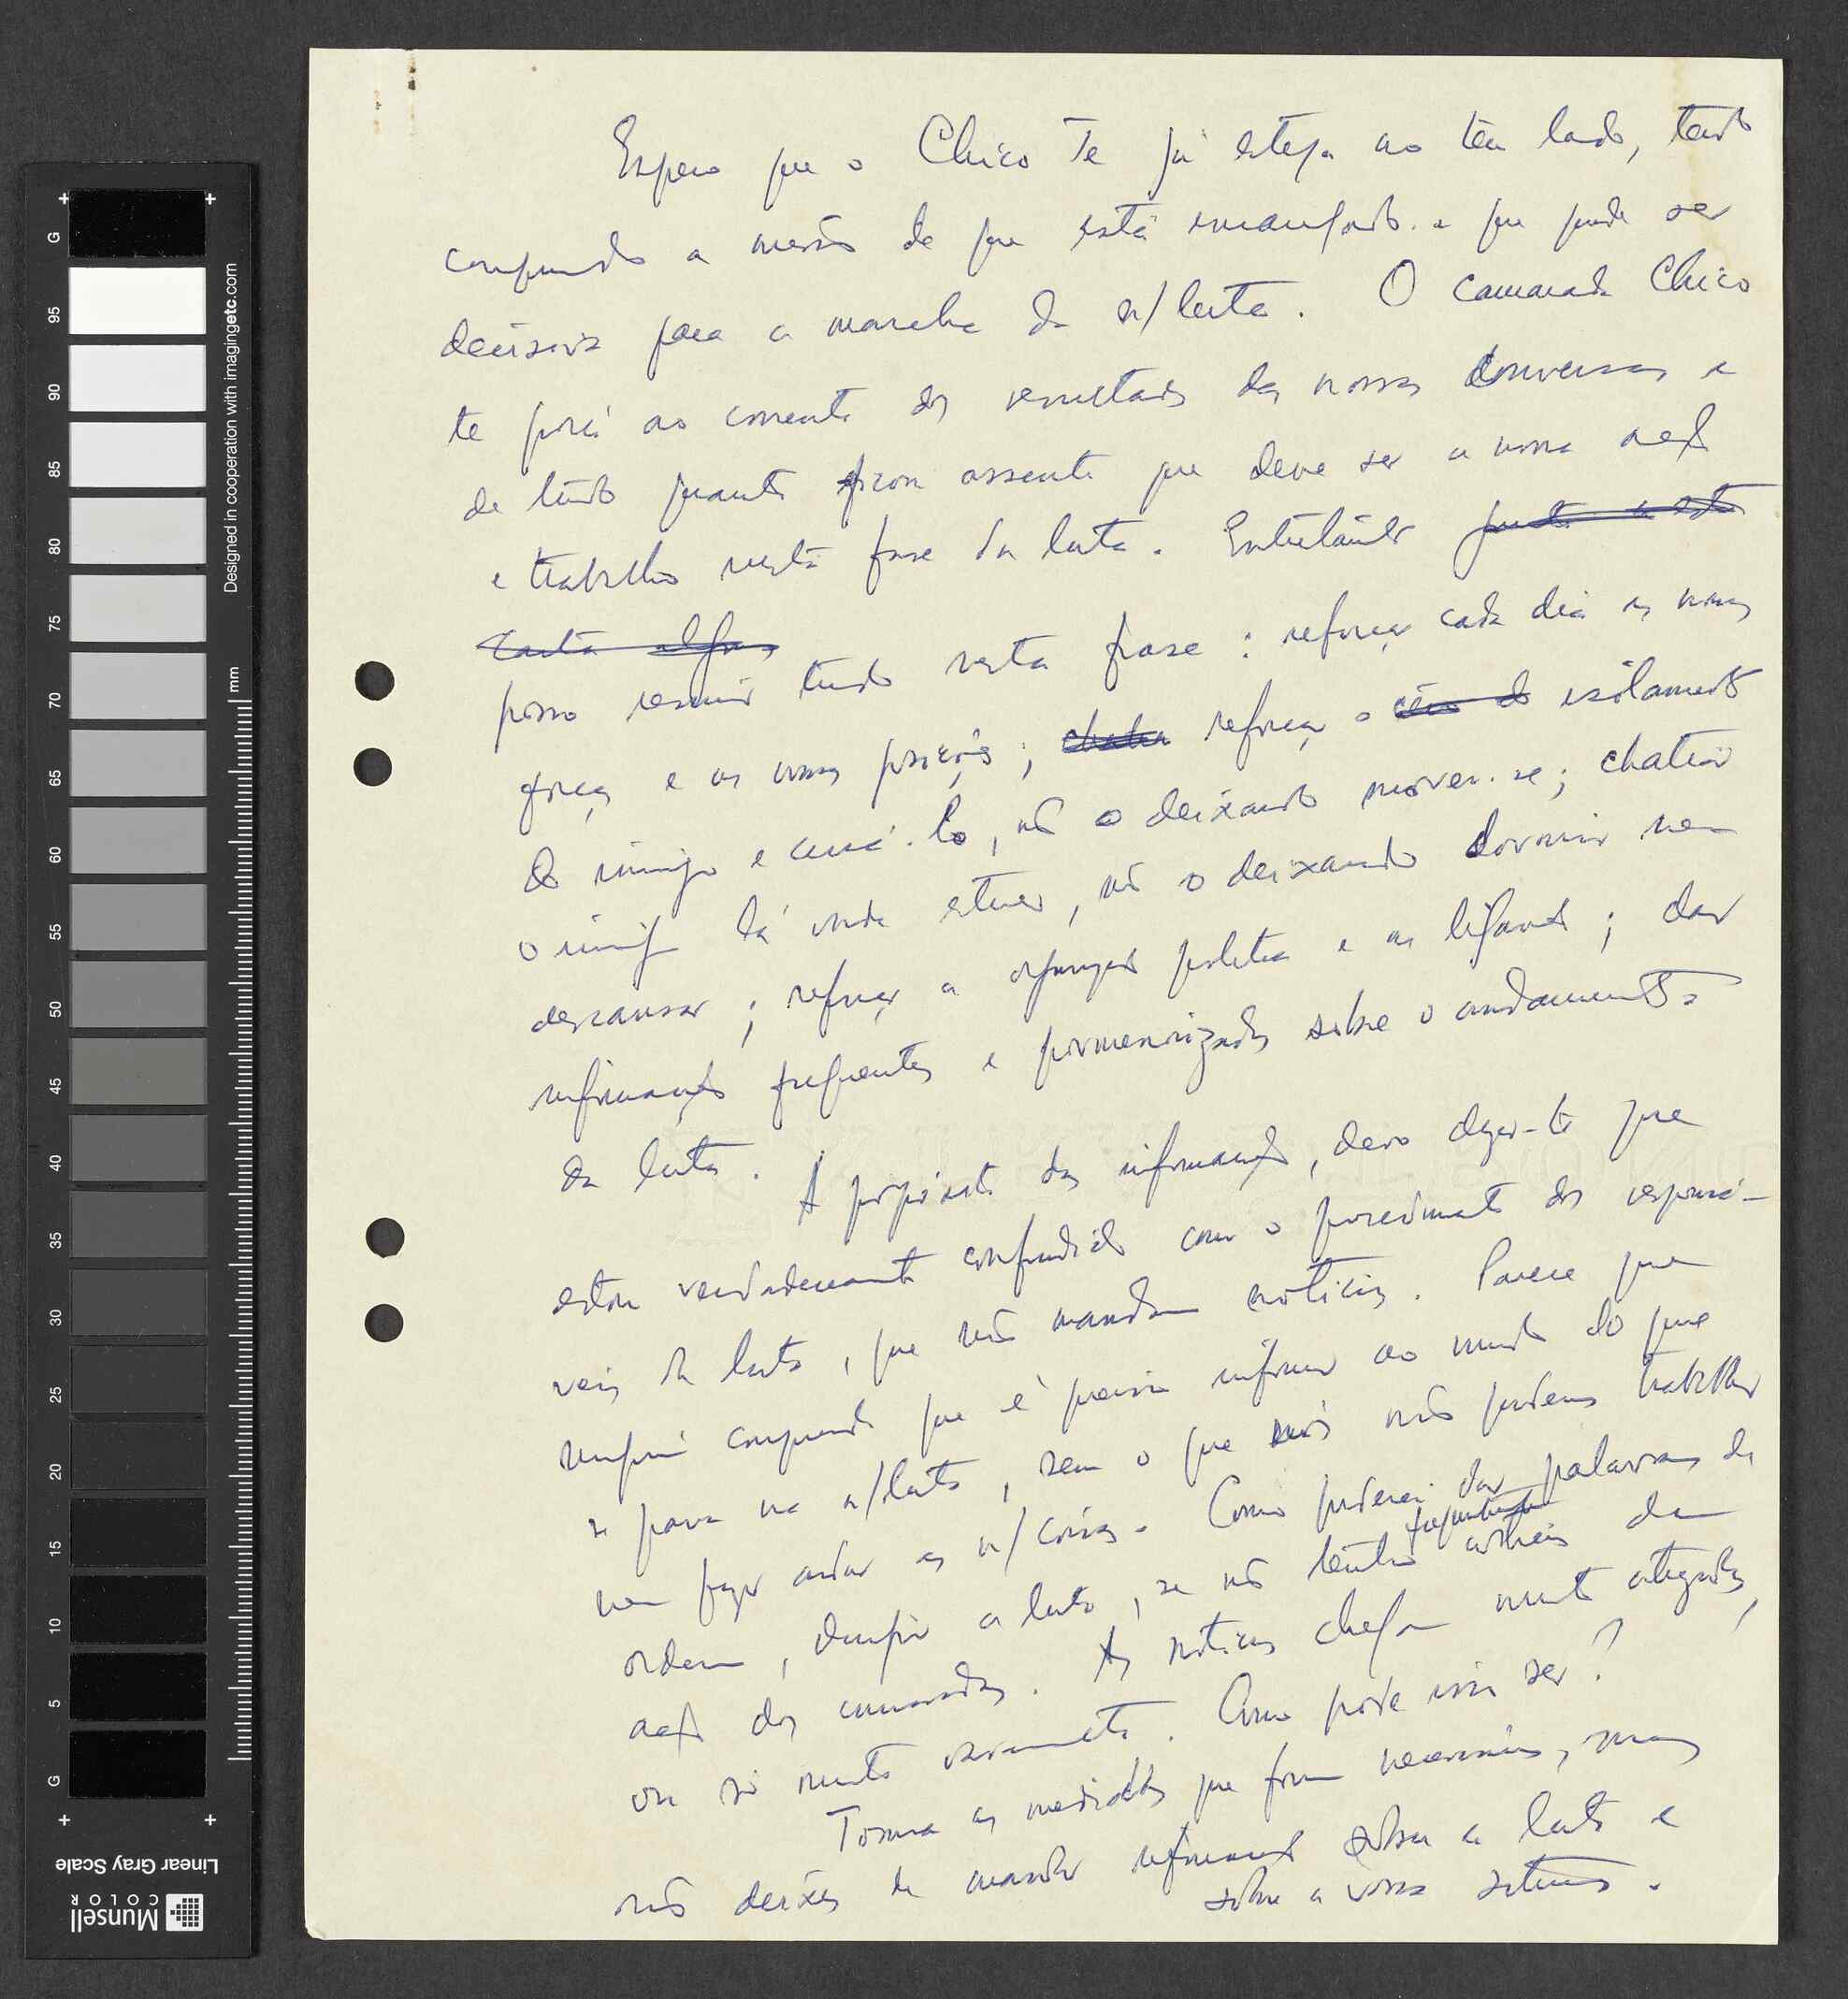 Espero que o Chico Te já esteja ao teu lado, tendo
cumprindo a missão de que está encarregado e que pode ser
decisiva para a marcha da n/luta. O camarada Chico
te porá ao corrente dos resultados das nossas conversas e
de tudo quanto ficou assente que deve ser a nossa acção
e trabalho nesta fase da luta. Entretanto junto a esta
carta algum
posso resumir tudo nesta frase: reforçar cada dia as nossas
forças e as nossas posições; chatea reforçar o isolamento
do inimigo e cercá-lo, não o deixando mover-se; chatear
o inimigo lá onde estiver, não o deixando dormir nem
descansar; reforçar a organização política e as ligações; dar
informações frequentes e pormenorizadas sobre o andamento
da luta.
A propósito das informações, devo dizer-te que
estou verdadeiramente confundido com o procedimento dos responsá-
veis da luta, que não mandam notícias. Parece que
ninguém compreende que é preciso informar ao mundo do que
se passa na n/luta, sem o que nós não podemos trabalhar
nem fazer andar as n/coisas. Como poderei dar palavras de
ordem, dirigir a luta, se não tenho notícias da
frequentemente
acção dos camaradas. As notícias chegam muito atrazadas,
ou só muito raramente. Como pode isso ser?
Toma as medidas que forem necessárias, mas
não deixes de mandar informações sobre a luta e
sobre a vossa situação.